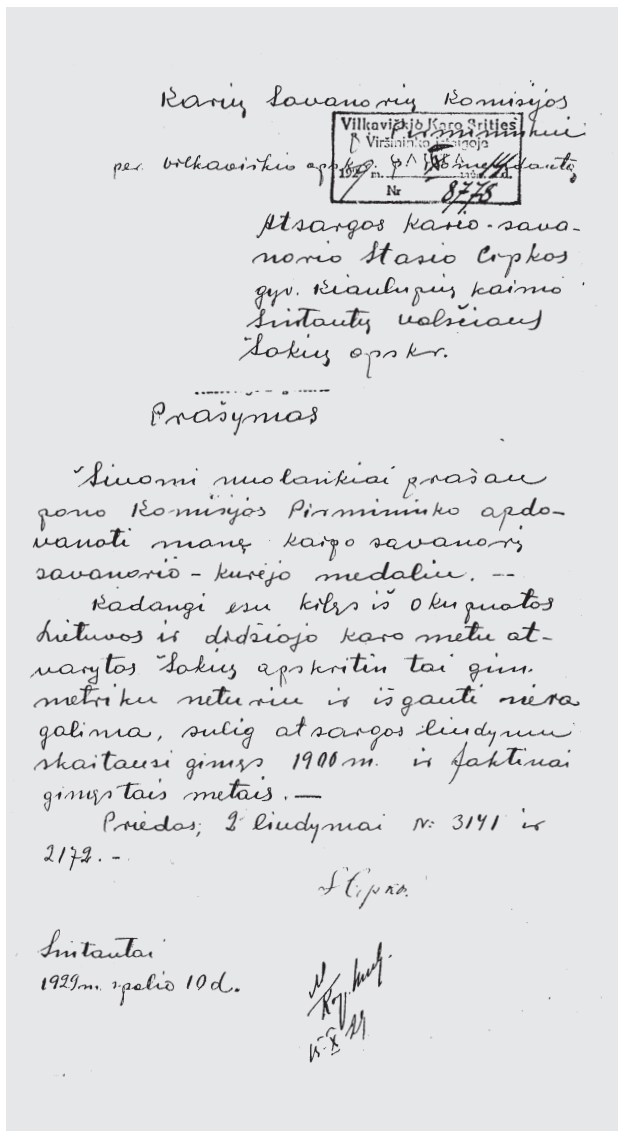 Karių Savanorių Komisijos
Pirmininkui
Vilkaviškio Karo Srities
Viršininko įstaigoje
per Vilkaviškio apskr.
192 m. X mėn. 14 d.
Nr 8778
Atsargos kario-sava-
norio Stasio Cipkos
gyv. Kiaulupių kaimo
Sintautų valsčiaus
Šakių apskr.
Prašymas
Šiuomi nuolankiai prašau
pono Komisijos Pirmininko apdo-
vanoti manę kaipo savanorį
savanorio-kurėjo medaliu. --
Kadangi esu kilęs iš okupuotos
Lietuvos ir didžiojo karo metu at-
varytas Šakių apskritin tai gim.
metrikų neturiu ir išgauti nėra
galima, sulig atsargos liudymu
skaitausi gimęs 1900 m. ir faktinai
gimęs tais metais. —
Priedas; 2 liudymai N: 3141 ir
2172. -
S Cipka.
Sintautai
1929 m. spalio 10 d.
15-X 29